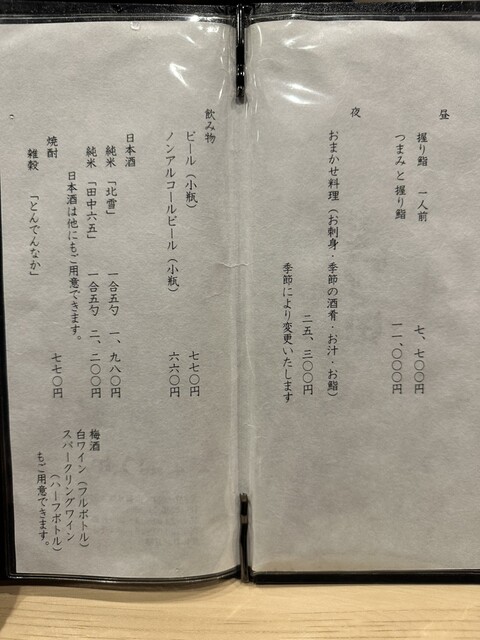 昼
握り鮨 一人前 七、七〇〇円
つまみと握り鮨 一一、〇〇〇円
夜
おまかせ料理(お刺身・季節の酒肴・お汁・お鮨)
二五、三〇〇円
季節により変更いたします
飲み物
ビール(小瓶) 七七〇円
ノンアルコールビール(小瓶) 六六〇円
日本酒
純米「北雪」 一合五勺 一、九八〇円
純米「田中六五」 一合五勺 二、二〇〇円
日本酒は他にもご用意できます。
焼酎 七七〇円
雑穀 「とんでんなか」
梅酒
白ワイン(フルボトル)
スパークリングワイン
(ハーフボトル)
もご用意できます。